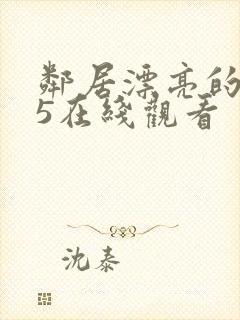 鄰居漂亮的
5在綫觀看
沈泰